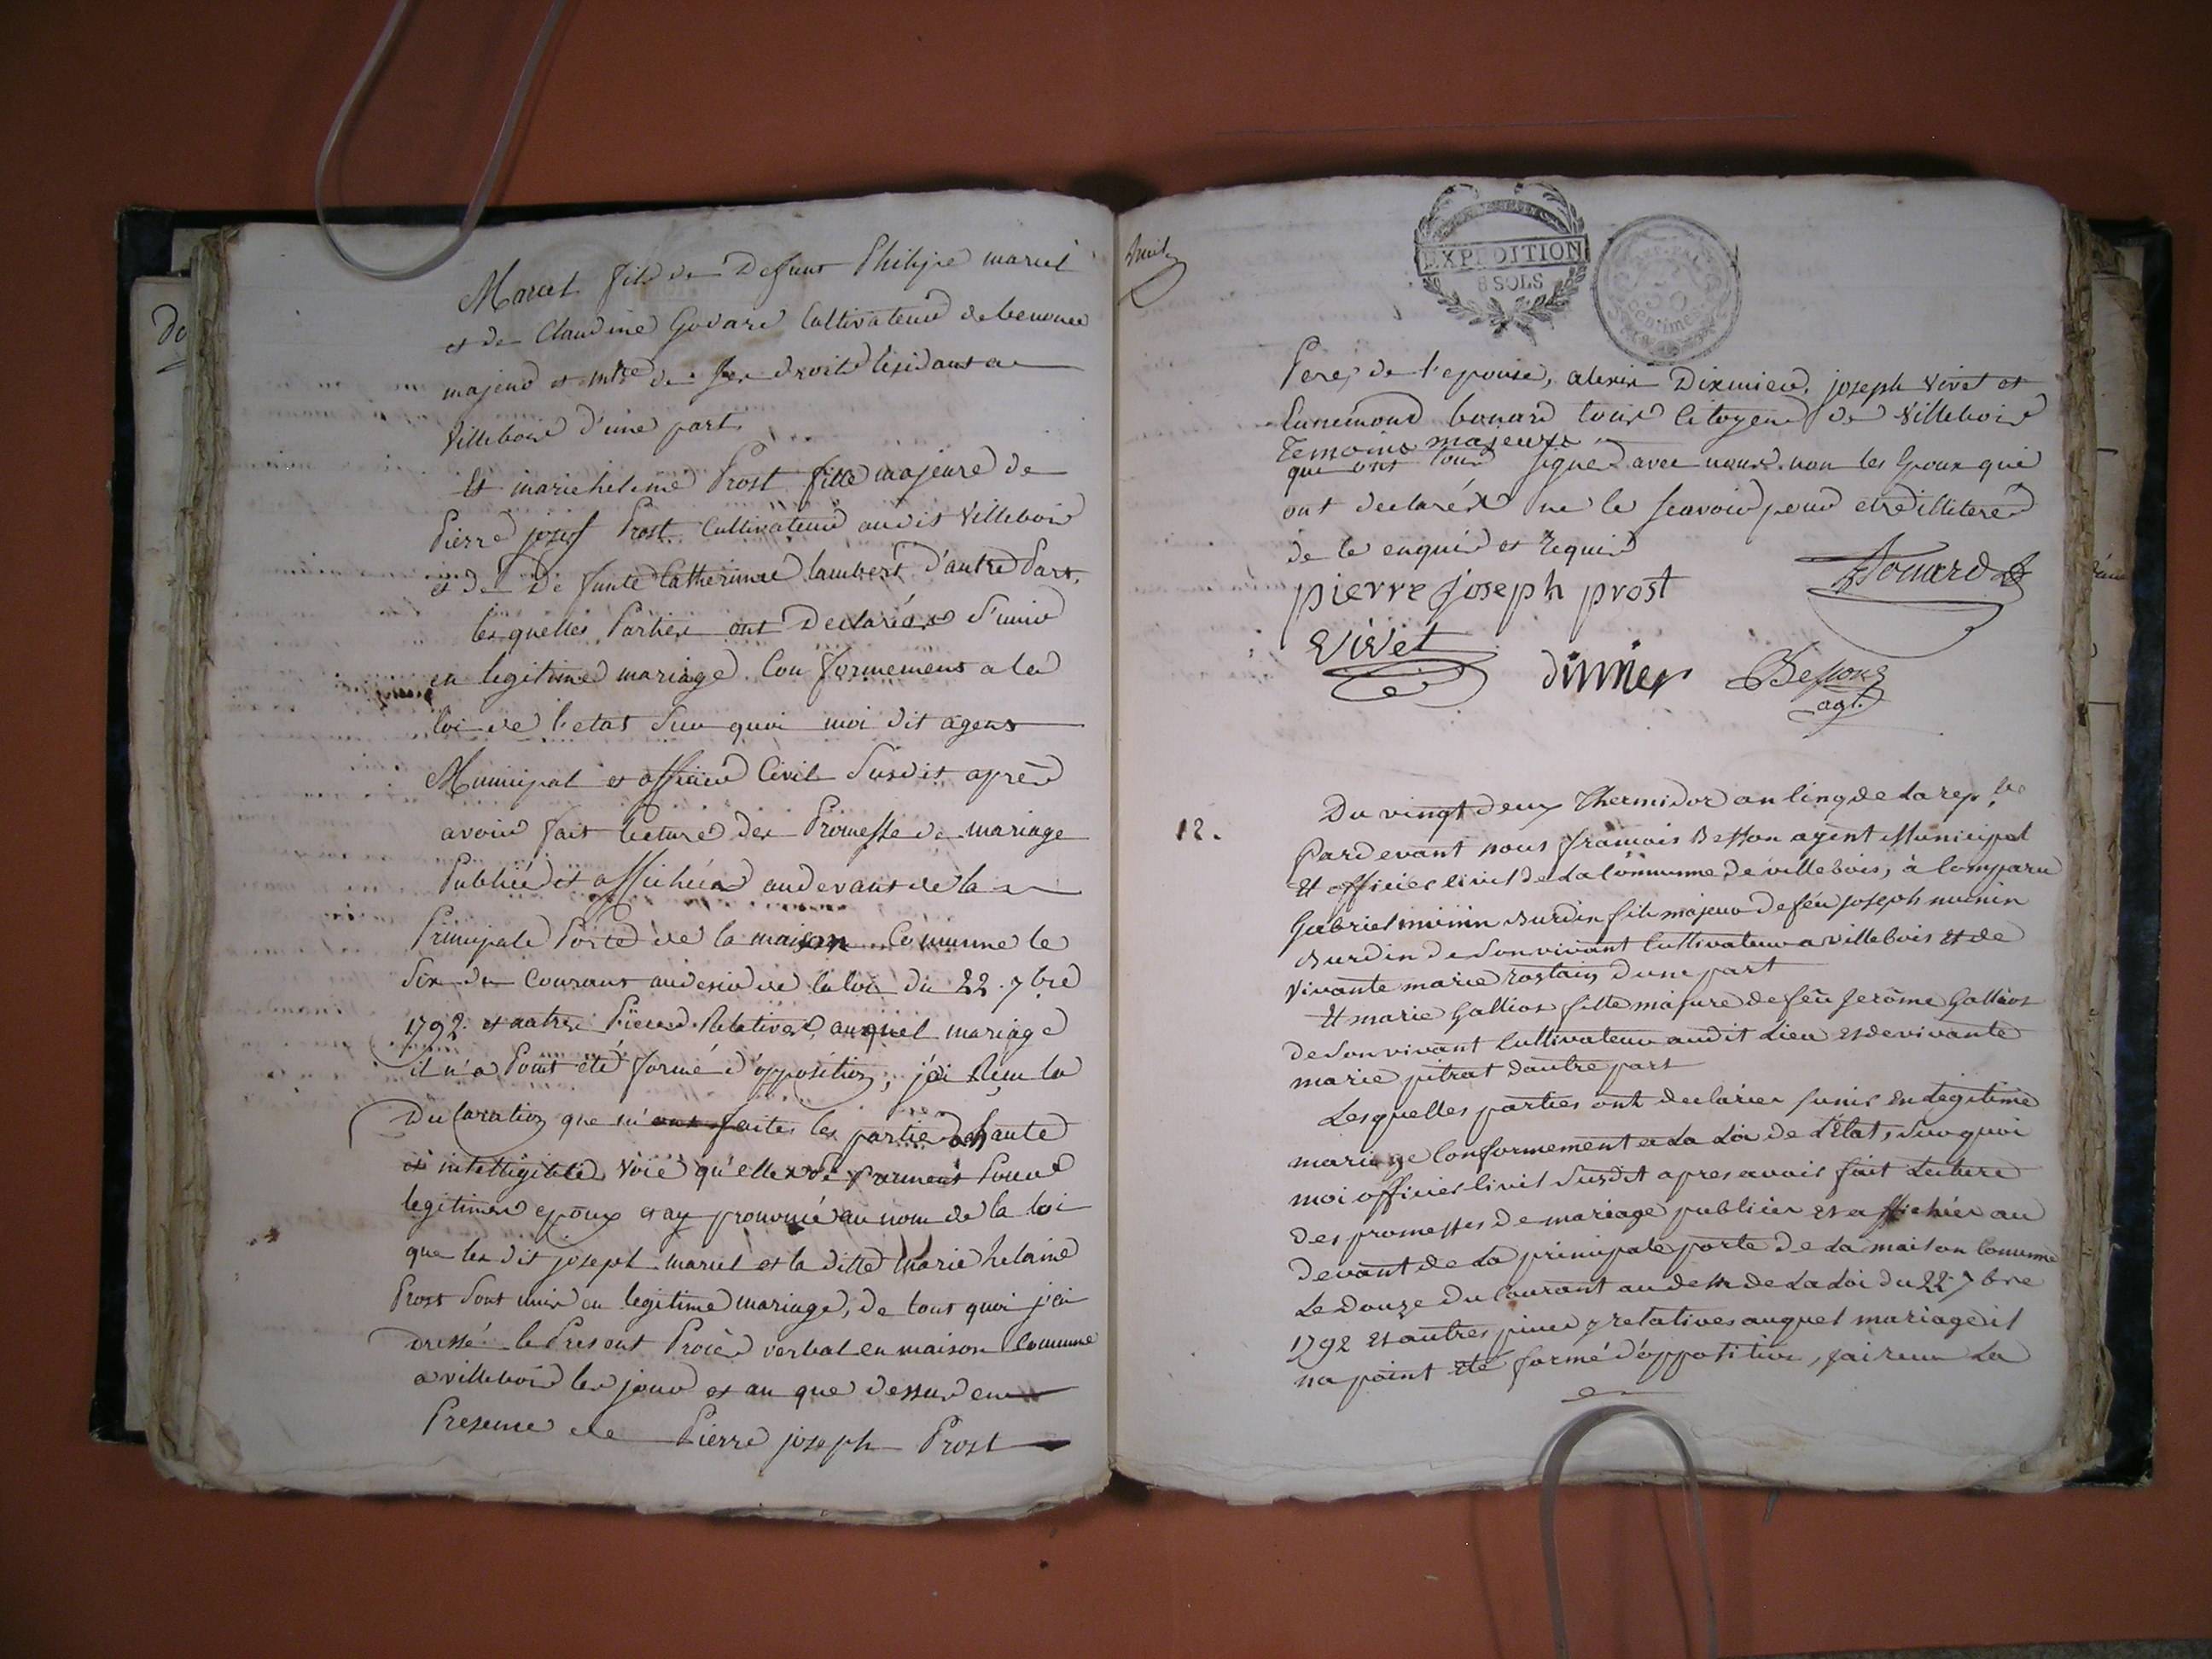 Marcel fils de Defunt Philipe marcel
et de Claudine Godard Cultivateur de benonce
majeur et mtre de ses droits residant a
Villebois d'une part
Et marie heleme Prost fille majeure de
Pierre josef Prost Cultivateur audit Villebois
et de De funte Catherinne lambert d'autre Part,
les quelles Parties ont Declarées S'unir
en legitime mariage Conformement a la
loi de l'etat Sur quoi moi dit agent
Municipal et officier Civil Susdit après
avoir fait lecture des Promesse de mariage
Publiées et affichées audevant de la
Principale Porte de la maison Comunne le
Six du Courant audesir de la loi du 22. 7bre
1792. et autres Pieces Relatives, auquel mariage
il n'a Point été formé d'opposition, j'ai Reçu la
Declaration que m'ont faites les parties a haute
et intelligible Voie qu'elles Se Prennent Pour
legitimes epoux et ay prononcé au nom de la loi
que les dit joseph marcel et la ditte Marie helaine
Prost Sont unis en legitime mariage, de tout quoi j'ai
dressé le Present Procès verbal en maison Commune
a villebois les jour et an que dessus en
Presence de Pierre joseph Prost
EXPEDITION
8 SOLS
50
Centimes
Pere de l'epouse, alexis Dixmier, joseph Vivet et
bouard tous Citoyens de Villebois
Temoins majeurs
que ont tous Signer avec nous non les Epoux qui
ont declaréx ne le Scavoir pour etre illiterés
de ce enquis et Requis
pierre joseph prost
Bouard
Vivet
dimier
Besson
agt.
12.
Du vingt deux Thermidor an Cinq de la rep.
Pardevant nous francois Besson agent Municipal
Et officier Civil de La Commune de villebois, à Comparu
Gabriel munin Burdin fils majeur de feu joseph munin
Burdin de Son vivant Cultivateur a villebois Et de
Vivante marie rostain d'une part
Et marie Gallios fille majeure de feu Jerôme Gallios
de Son vivant Cultivateur audit Lieu et de vivante
marie pitrat dautre part
Lesquelles parties ont declarées sunir En Legitime
mariage Conformement a La Loi de L'Etat, Sur quoi
moi officier Civil Susdit apres avoir fait Lecture
des promesses de mariage publiées et affichées au
devant de La principale porte de La maison Commune
Le Douze du Courant au desir de La Loi du 22 7bre
1792 et autres pieces y relatives auquel mariage il
na point eté formé d'opposition, jai recu La